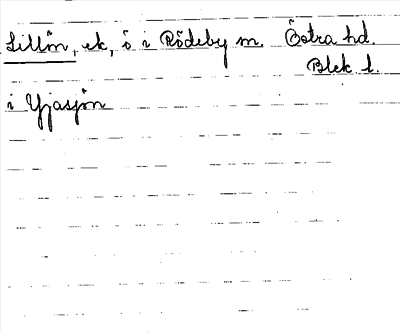 Lillön, ek, ö i Rödeby sn. Östra hd.
Blek l.
i Yjasjön